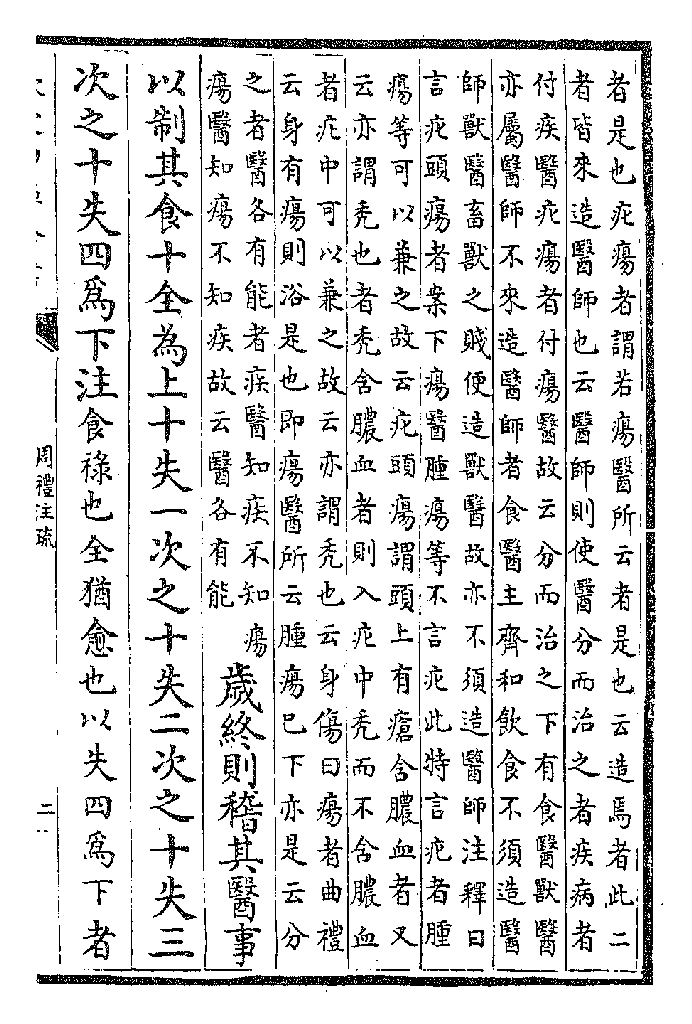 者是也疕瘍者謂若瘍醫所云者是也云造焉者此二
者皆來造醫師也云醫師則使醫分而治之者疾病者
付疾醫疕瘍者付瘍醫故云分而治之下有食醫獸醫
亦屬醫師不來造醫師者食醫主齊和飲食不須造醫
師獸醫畜獸之賤便造獸醫故亦不須造醫師注釋曰
言疕頭瘍者案下瘍醫腫瘍等不言疕此特言疕者腫
瘍等可以兼之故云疕頭瘍謂頭上有瘡含膿血者又
云亦謂禿也者禿含膿血者則入疕中禿而不含膿血
者疕中可以兼之故云亦謂禿也云身傷曰瘍者曲禮
云身有瘍則浴是也即瘍醫所云腫瘍巳下亦是云分
之者醫各有能者疾醫知疾不知瘍
瘍醫知瘍不知疾故云醫各有能
歲終則稽其醫事
以制其食十全為上十失一次之十失二次之十失三
次之十失四爲下注食祿也全猶愈也以失四爲下者
周禮注疏
二